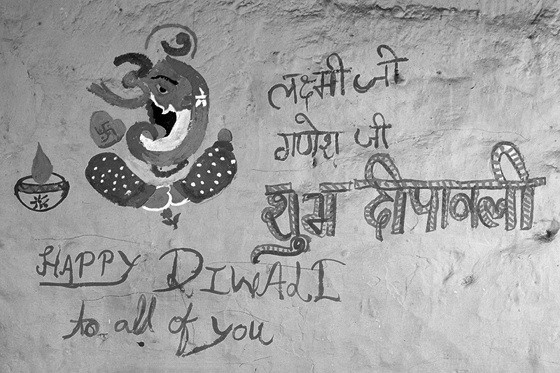 लक्ष्मी जी
गणेश जी
शुभ दीपावली
HAPPY DIWALI
to all of you